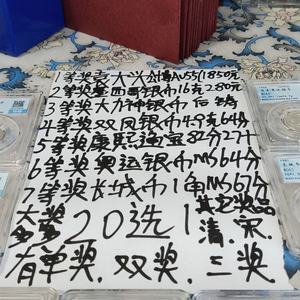 1等奖袁大头金标AU55 1850元
2等奖墨西哥银币16克280元
3等奖大力神银币后铸
4等奖双凤银币4个克64分
5等奖康熙通宝82分27十
6等奖奥运银币MS64分
7等奖长城币1角MS67分
大奖
多多
20选1
其它奖品
清.宋.
有单奖.双奖.三奖